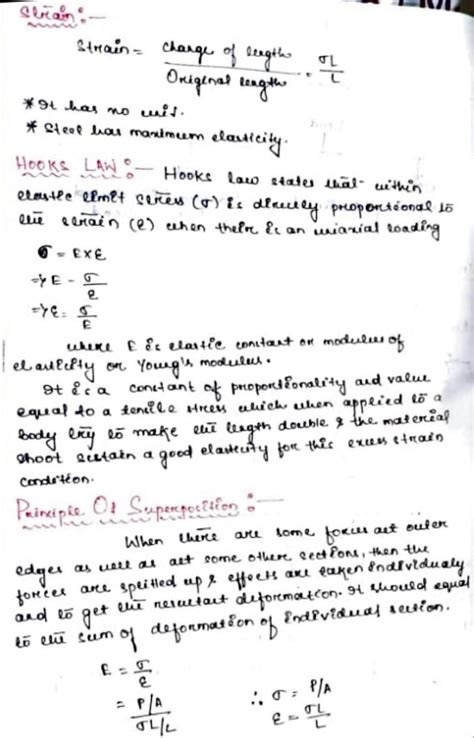 Strain :-
Strain = change of length / Original length = σL / L
* It has no unit.
* Steel has maximum elasticity.
HOOKS LAW :- Hooks law states that within
elastic limit stress (σ) is directly proportional to
the strain (e) when their is an uniaxial loading
σ = E×ε
=> E - σ / ε
=> ε = σ / E
where E is elastic constant or modulus of
elasticity or Young's modulus.
It is a constant of proportionality and value
equal to a tensile stress which when applied to a
body try to make the length double & the material
shoot sustain a good elasticity for this excess strain
condition.
Principle Of Superposition :-
When there are some forces act outer
edges as well as act some other sections, then the
forces are splitted up & effects are taken individualy
and to get the resultant deformation. It should equal
to the sum of deformation of individual section.
E = σ / ε
= P/A / σL/L
∴ σ = P/A
ε = σL / L